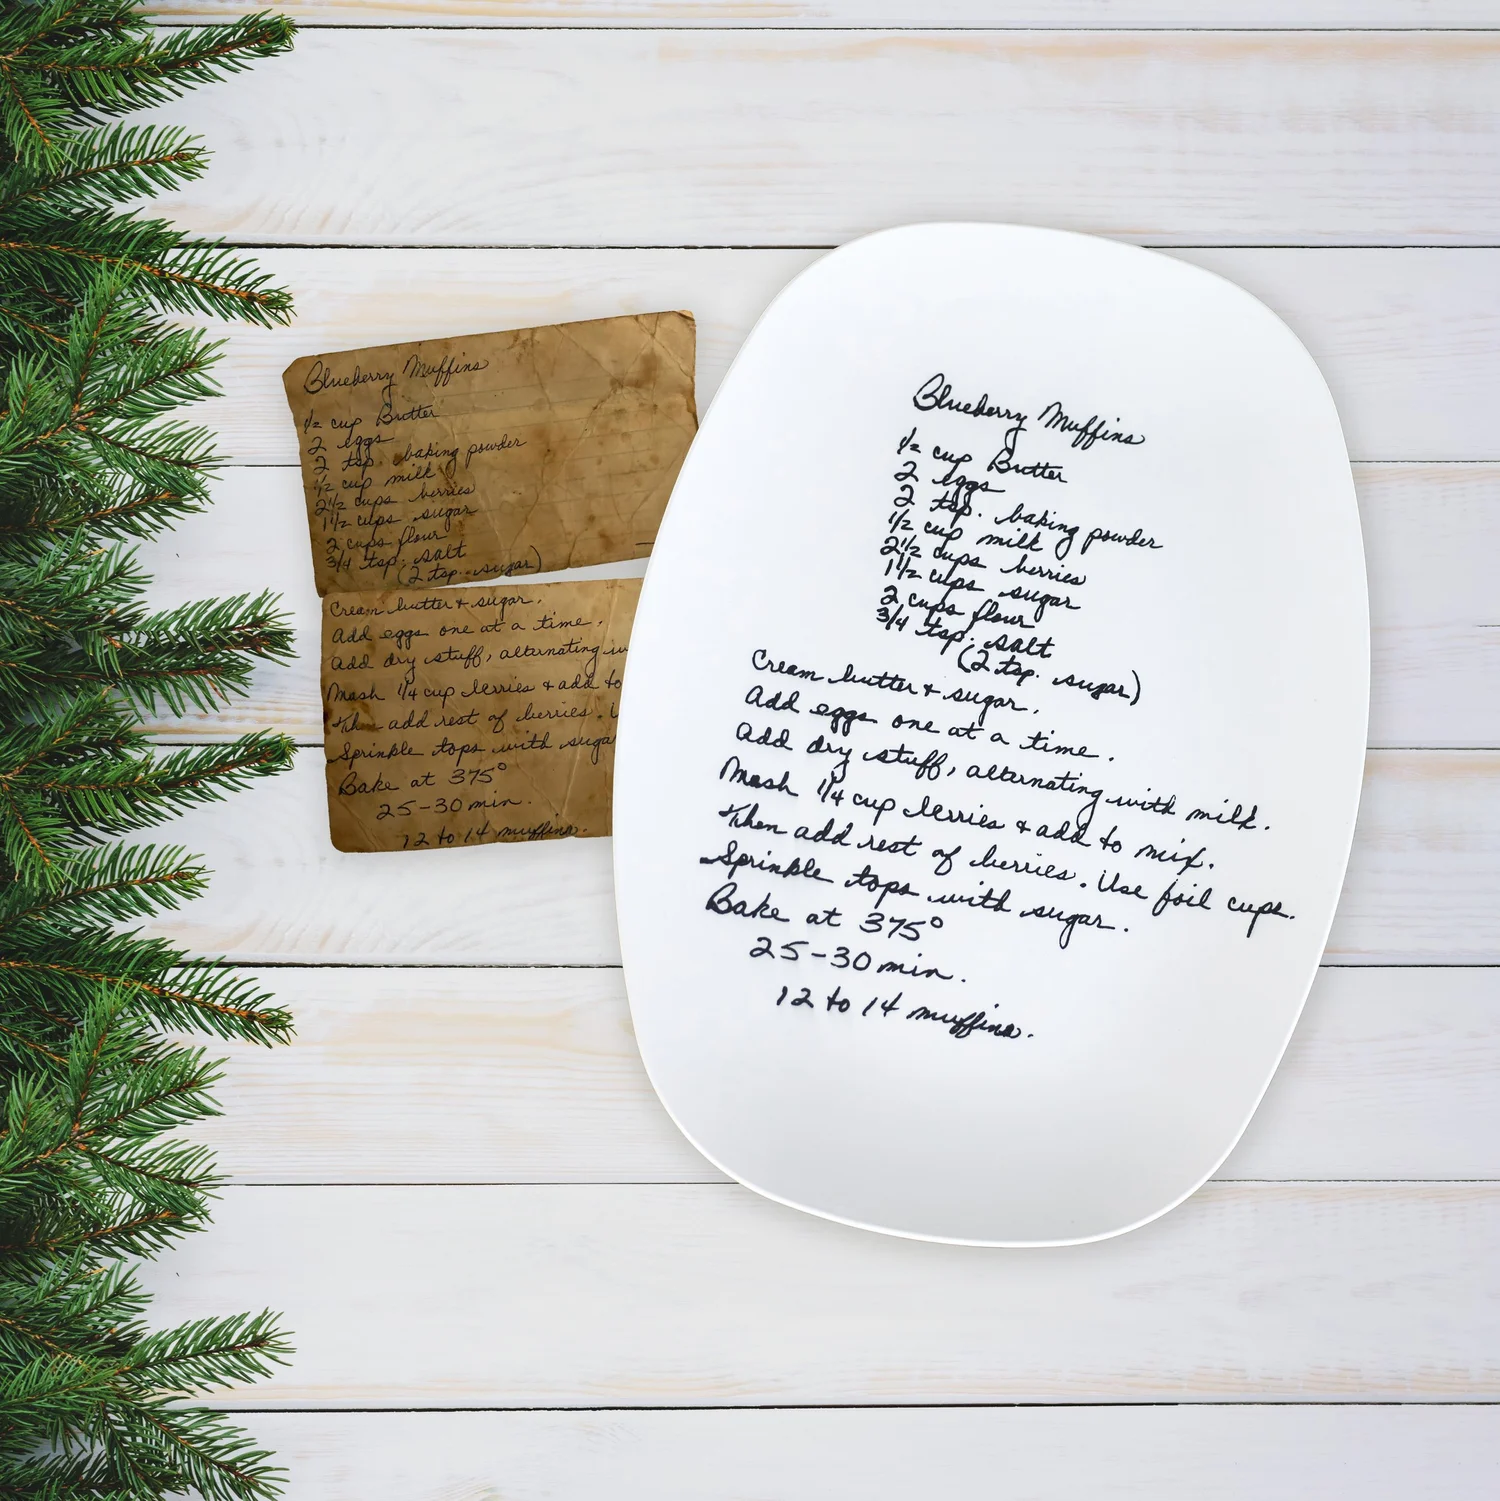 Blueberry Muffins
1/2 cup Butter
2 eggs
2 tsp. baking powder
1/2 cup milk
2 1/2 cups berries
1 1/2 cups sugar
2 cups flour
3/4 tsp. salt
(2 tsp. sugar)
Cream butter + sugar.
Add eggs one at a time.
Add dry stuff, alternating w
Mash 1/4 cup berries + add to
Then add rest of berries. U
Sprinkle tops with suga
Bake at 375°
25-30 min.
12 to 14 muffins.
Blueberry Muffins
1/2 cup Butter
2 eggs
2 tsp. baking powder
1/2 cup milk
2 1/2 cups berries
1 1/2 cups sugar
2 cups flour
3/4 tsp. salt
(2 tsp. sugar)
Cream butter + sugar.
Add eggs one at a time.
Add dry stuff, alternating with milk.
Mash 1/4 cup berries + add to mix.
Then add rest of berries. Use foil cups.
Sprinkle tops with sugar.
Bake at 375°
25-30 min.
12 to 14 muffins.